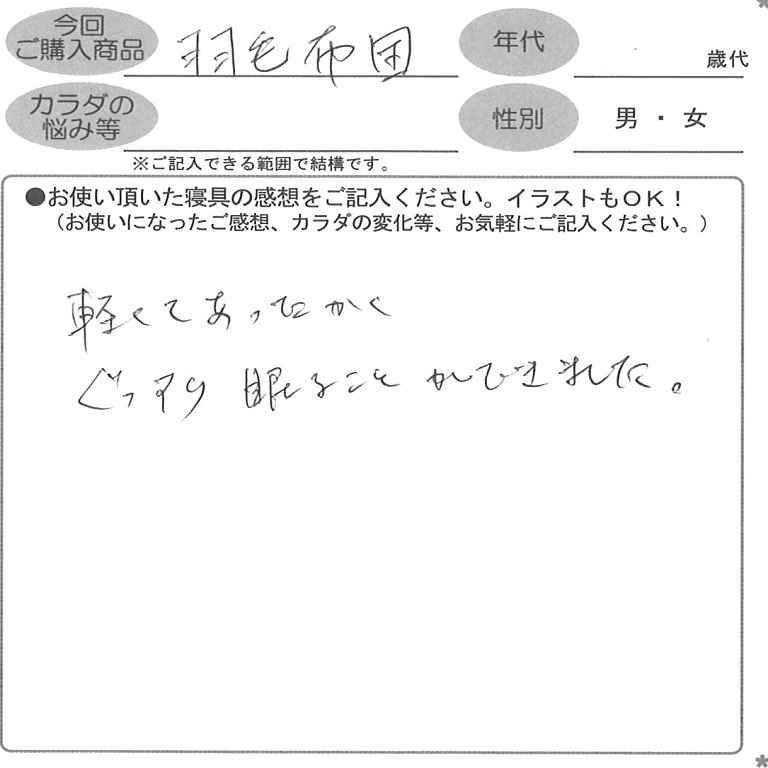 今回
ご購入商品
羽毛布団
年代
歳代
カラダの
悩み等
性別
男・女
※ご記入できる範囲で結構です。
●お使い頂いた寝具の感想をご記入ください。イラストもOK！
（お使いになったご感想、カラダの変化等、お気軽にご記入ください。）
軽くてあったかく
ぐっすり眠ることができました。